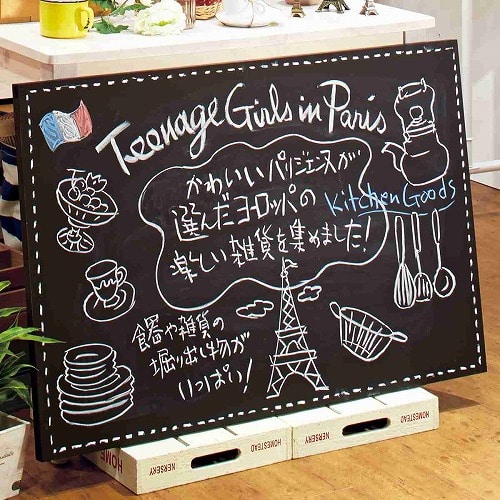 Teenage Girls in Paris
かわいいパリジェンヌが
選んだヨーロッパの
楽しい雑貨を集めました!
Kitchen Goods
食器や雑貨の
掘り出し物が
いっぱい!
HOME
HOMESTEAD
NERSERY
HOMESTEAD
NERSERY